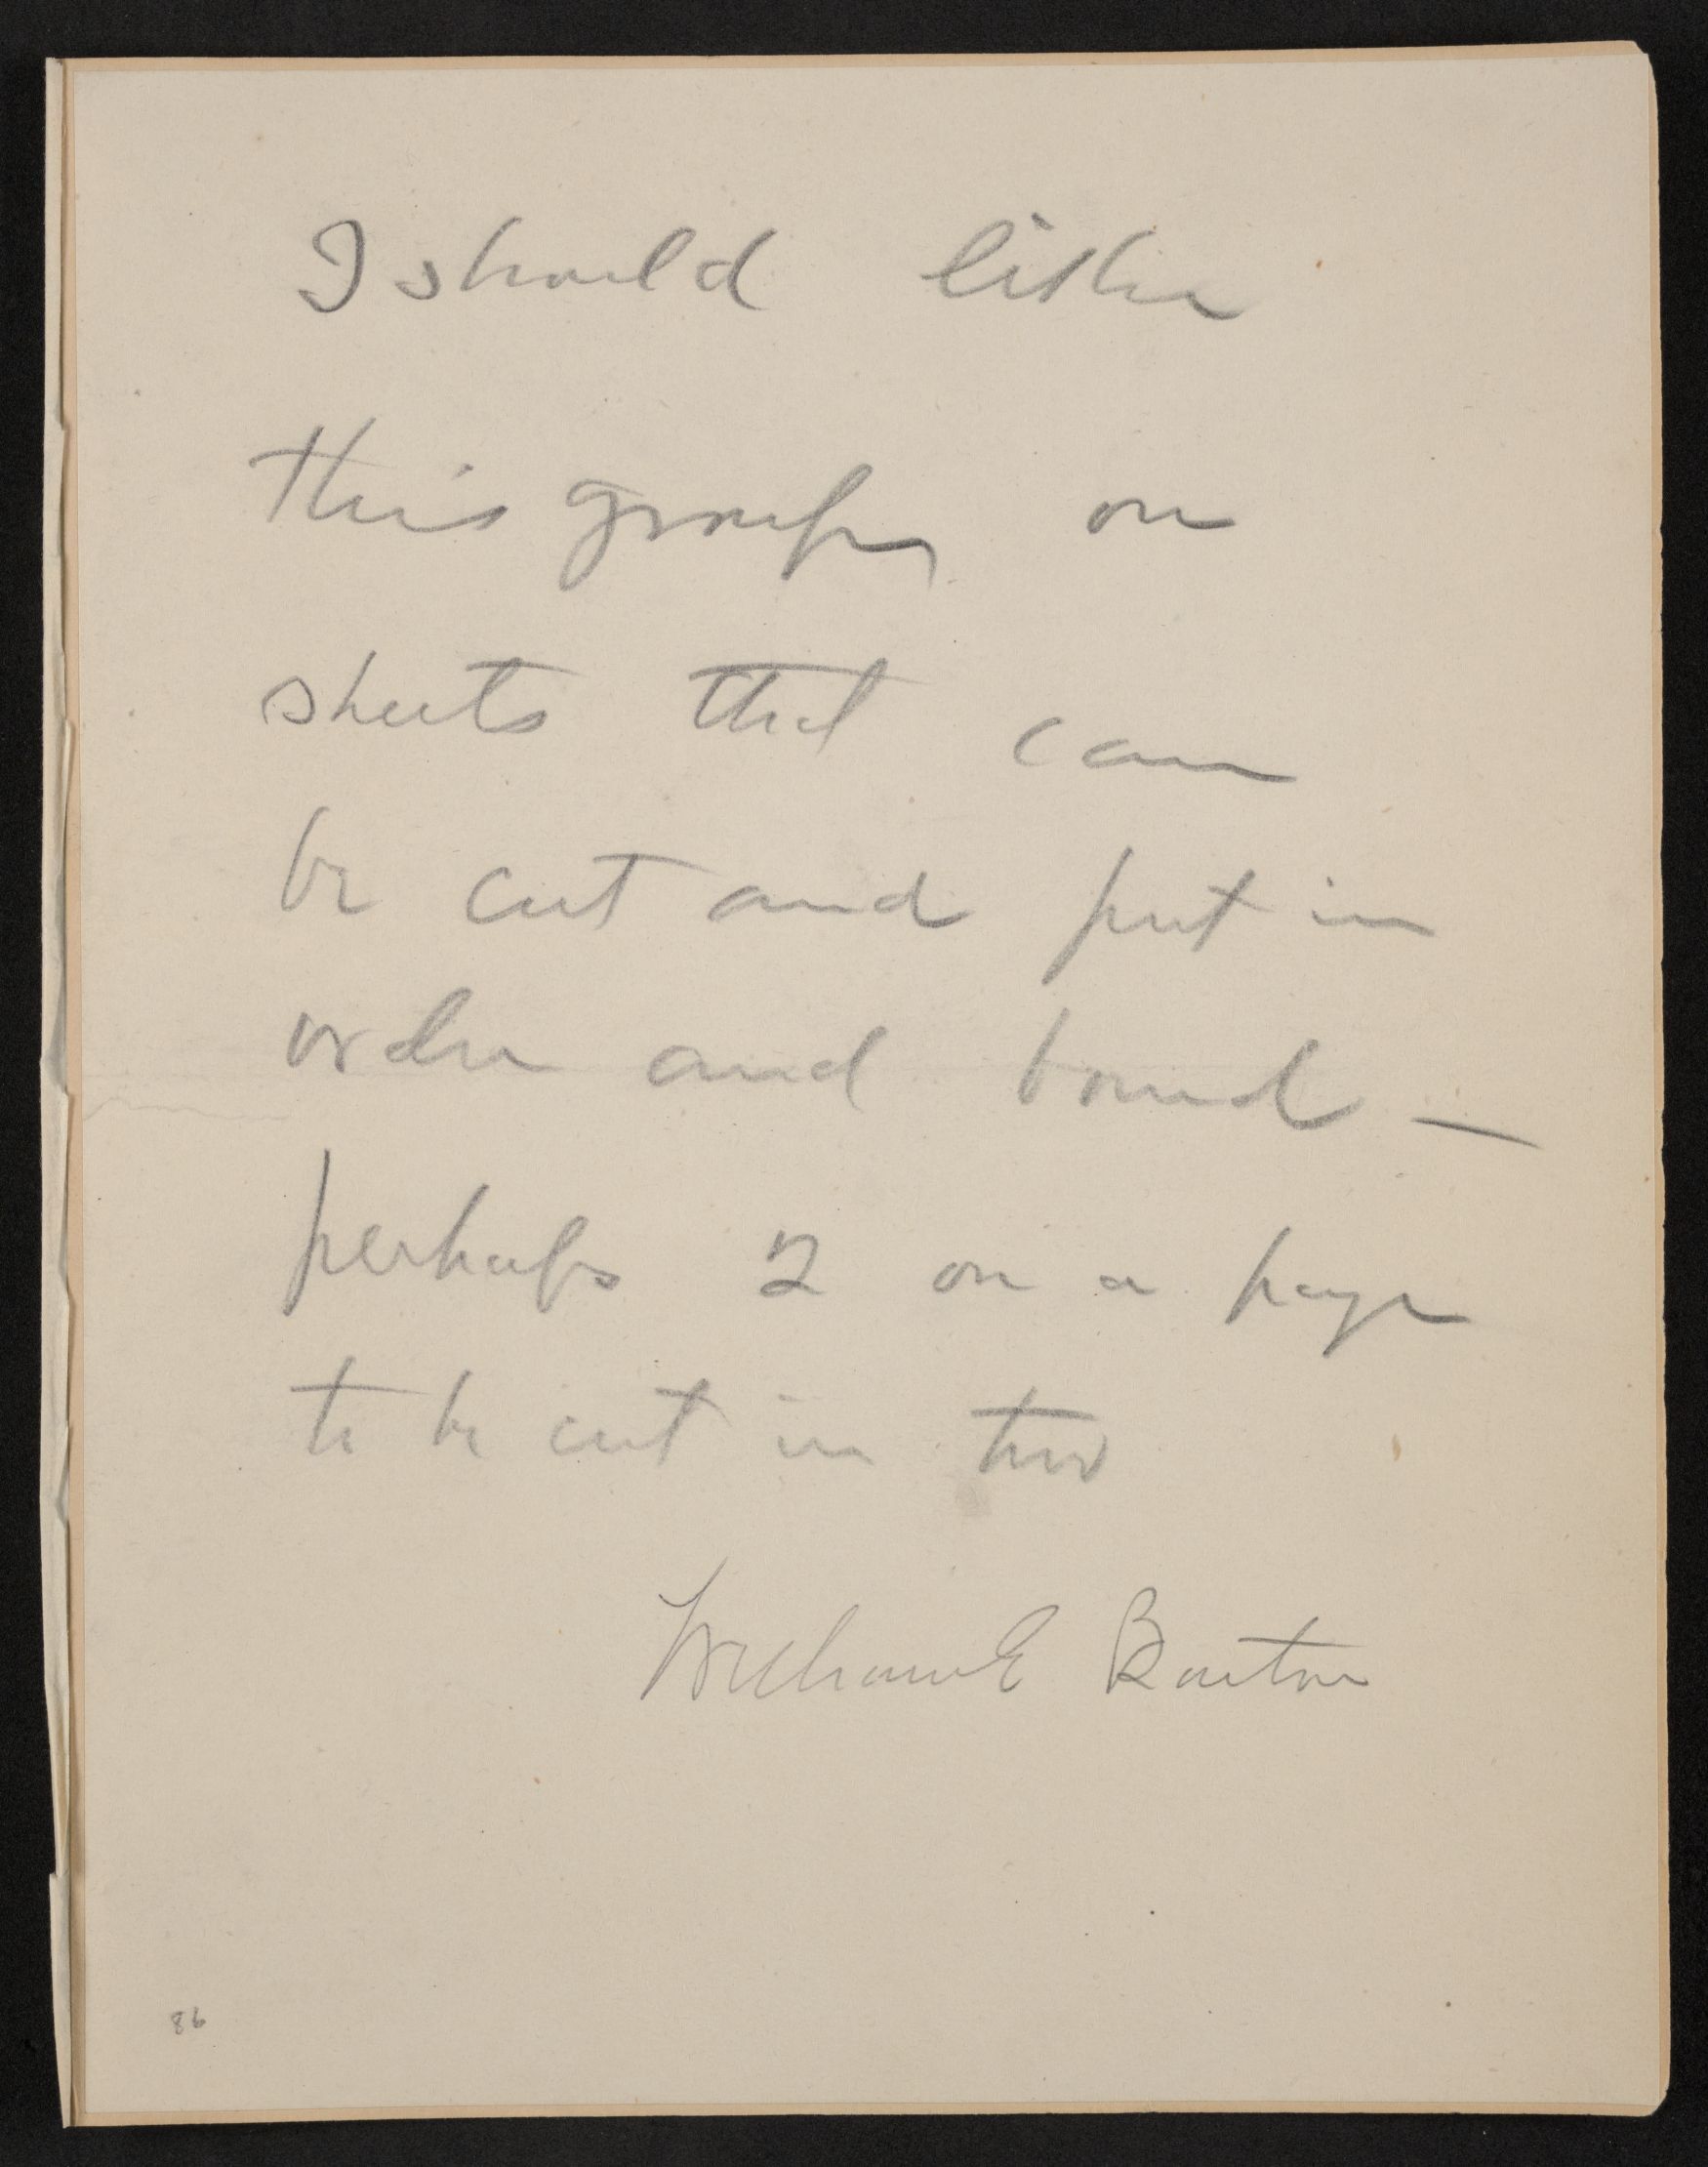 I should like
this group, on
sheets that can
be cut and put in
order and bound —
perhaps 2 on a page
to be cut in two
William E Barton
86